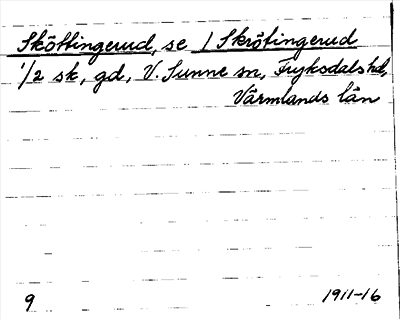 Sköttingerud, se / Skrötingerud
1/2 sk, gd, V. Sunne sn, Fryksdals hd,
Värmlands län
9
1911-16